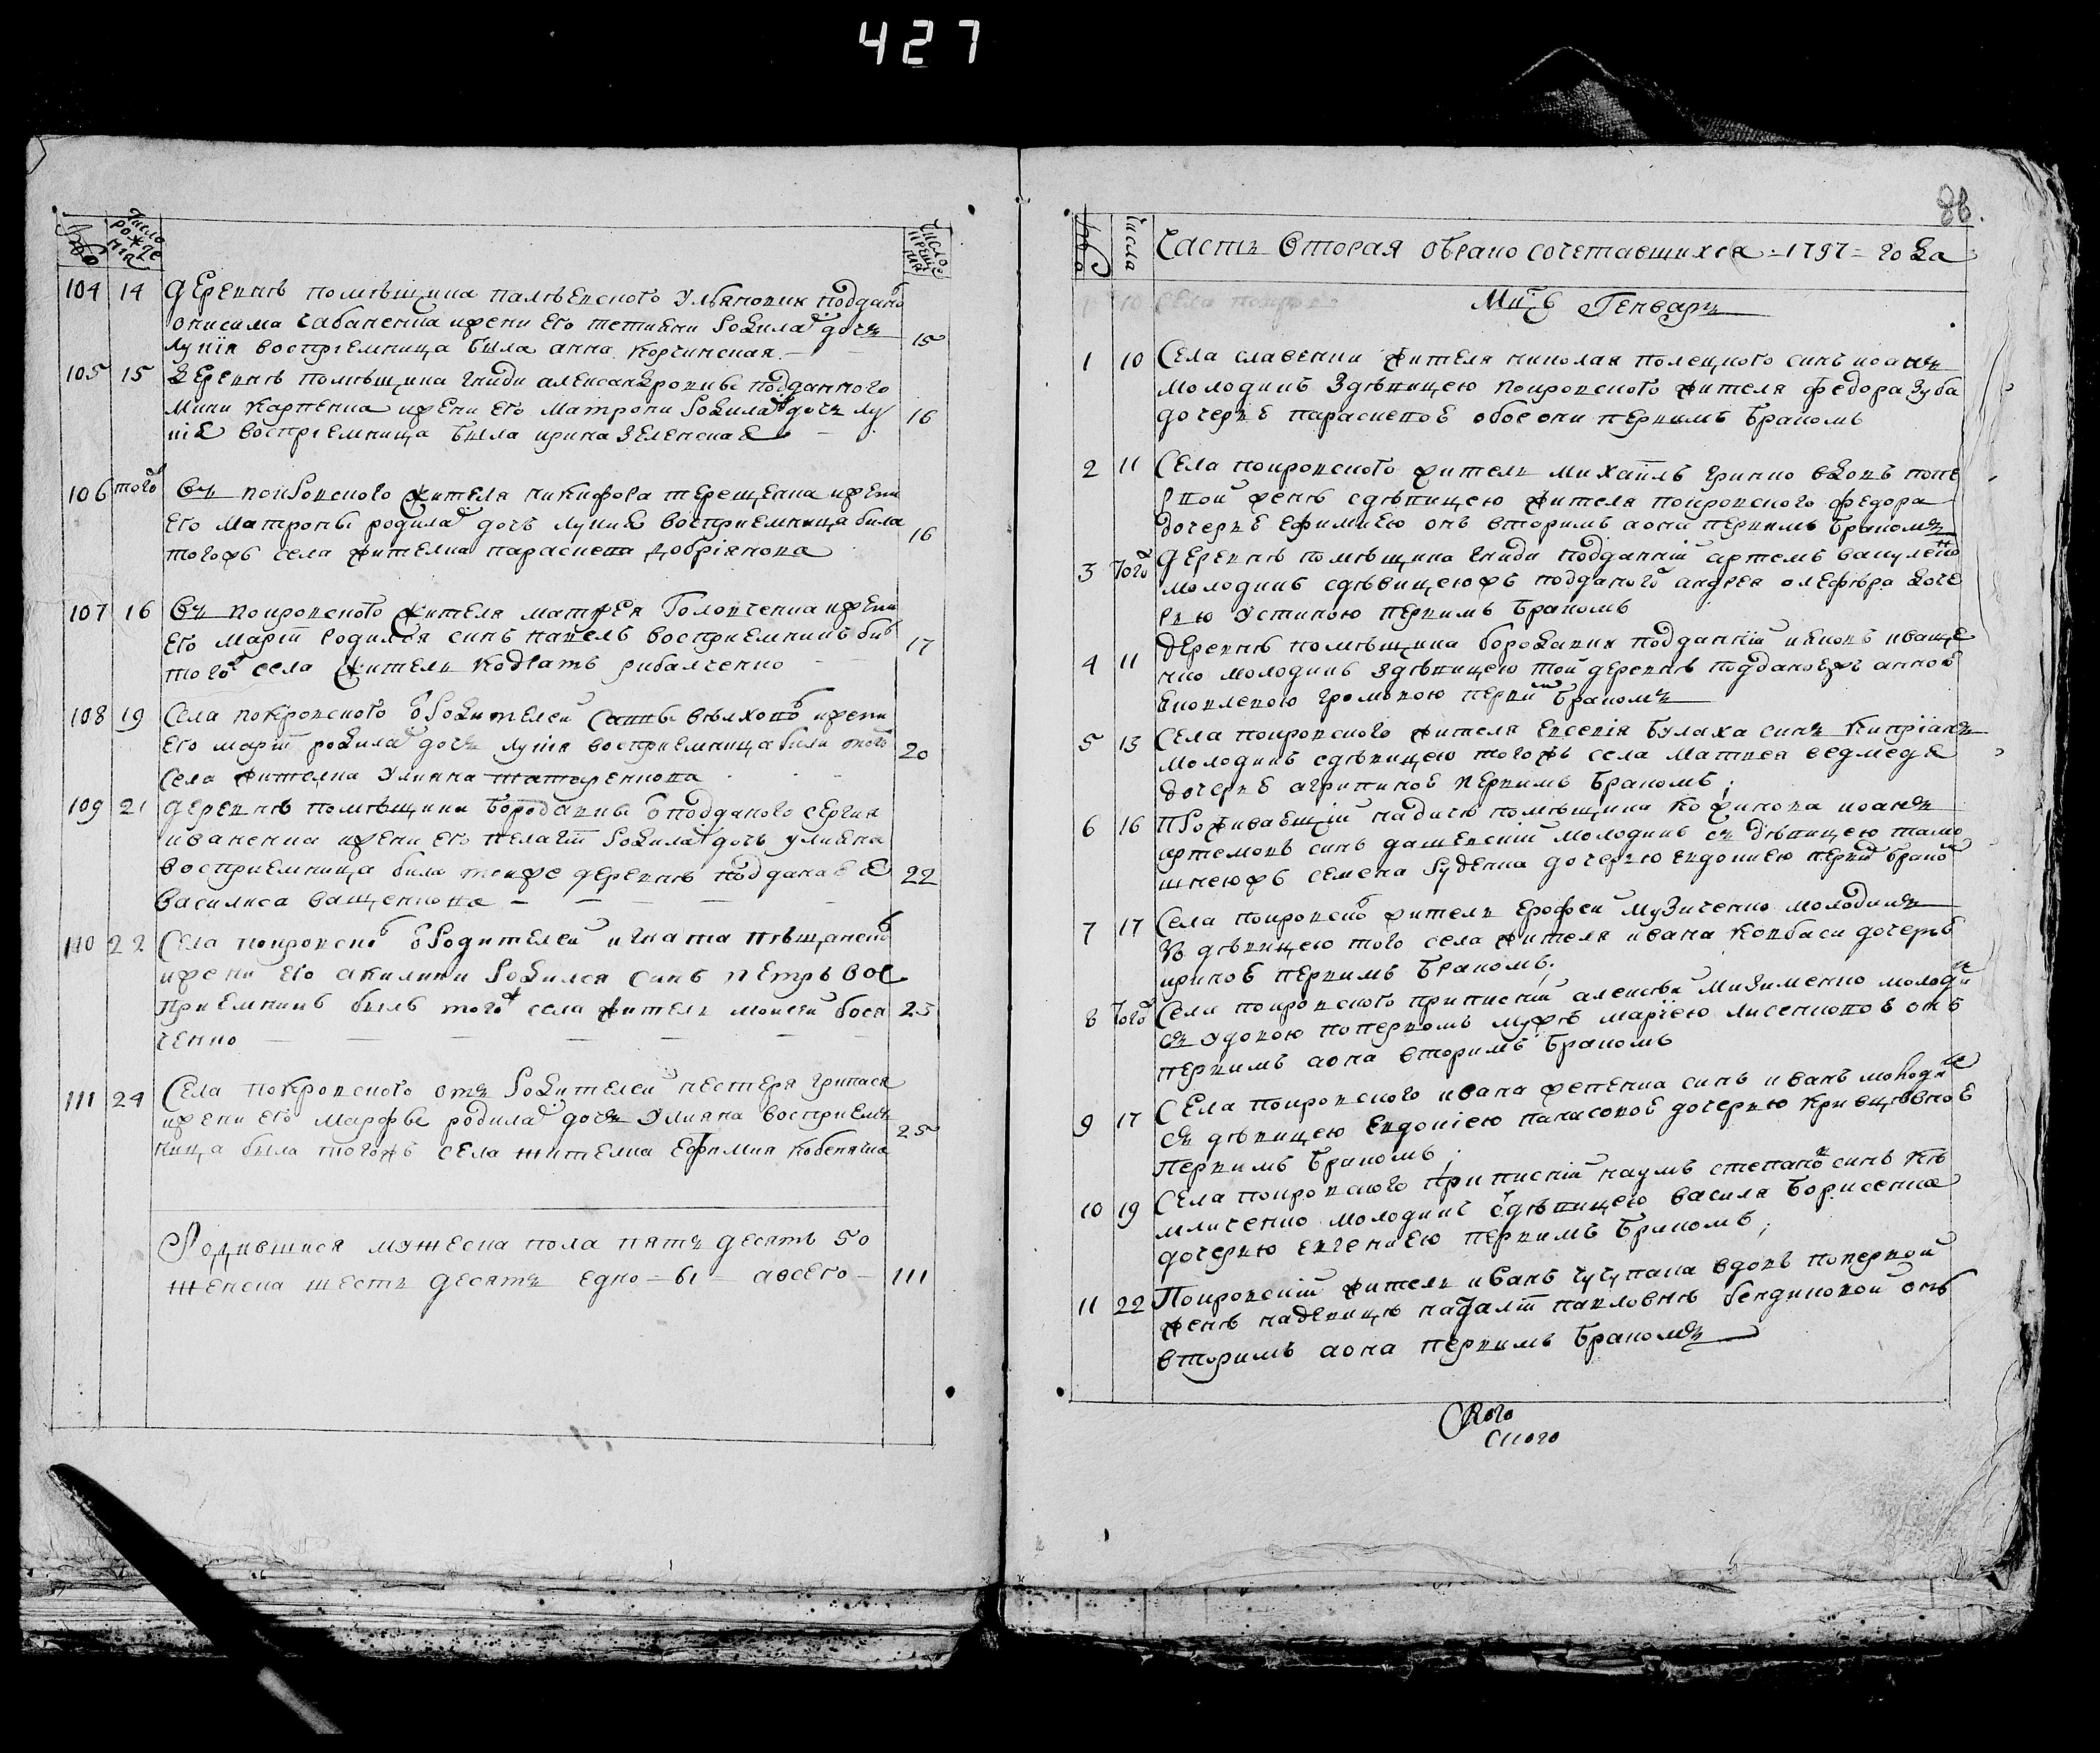 427
Число рожде нія
Число креще нія
104 14 Деревнѣ помѣщика палѣвского Ульяновки поддано
онисима чабаненка ижени его тетияни родила дочь
лукія восприемница была анна корчинская 15
105 15 Деревнѣ помѣщика гниди александровки подданного
мини карпенка ижени его матрони родила дочь лу
кіа восприемница была ирина зеленская 16
106 того Съ покровского жителя никифора терещенка ижени
его матроны родила дочь лукиа восприемница била
тогожъ села жителка параскева добріякова 16
107 16 Съ покровского жителя матфея Головченка ижени
его марти родился синъ павелъ восприемникъ бив
того села житель кодратъ рибалченко 17
108 19 Села покровского о родителей савы вѣлхово ижени
его марти родила дочь лукія восприемница била того
села жителка улияна 20
109 21 деревнѣ помѣщика Бородаевки о подданого сергия
иваненка ижени его пелагіи родила дочь улияна
восприемница била тоиже деревнѣ поддана
василиса ващенкова 22
110 22 Села покровско о родителей игната пѣщанско
ижени его акилини родился синъ петръ вос
приемникъ былъ того села житель моисей бося
ченко 23
111 24 Села покровского отъ родителей нестера грипася
ижени его марфы родила дочь улияна восприем
ница была тогожъ села жителка ефимия кобенячка 25
Родившися мужеска пола пять десять 50
женска шесть десять едно 61 авсего 111
86.
Числа
Часть вторая обракосочетавщихся 1797 года
10 Села покров
Мцъ Генварь
1 10 Села славенки жителя николая полецкого синъ иоанъ
молодикъ здѣвицею покровского жителя федора зуба
дочерне параскевое обое они первимъ бракомъ
2 11 Села покровского житель михаилъ гринко вдовъ попе
рвой женѣ сдѣвицею жителя покровского федора
дочерне ефимиею онъ вторимъ аона первимъ бракомъ
3 Того Деревнѣ помѣщика гниди подданій артемъ вакуленко
молодикъ сдѣвицеюжъ подданого андрея олефѣра доче
рію устиною первимъ бракомъ
4 11 деревнѣ помѣщика бородаевки подданій яковъ иваще
нко молодикъ здѣвицею той деревнѣ поддановожъ анное
яковлевою громовою перви бракомъ
5 13 Села покровского жителя евсевія булаха синъ кипріанъ
молодикъ сдѣвицею тогожъ села матвея ведмедя
дочерне агрипиное первимъ бракомъ;
6 16 Проживавщій надачѣ помѣщика кожинова иоанъ
артемовъ синъ дашевскій молодикъ съ дѣвицею тамо
шнеюжъ семена руденка дочерью евдокиею перви брако
7 17 Села покровско житель ерофей музиченко молодикъ
з дѣвицею того села жителя ивана ковбаси дочерѣ
иринов первимъ бракомъ.
8 Того Села покровского приписній алексѣй мизименко молоди
съ удовою поперво мъ мужѣ маріею лисенковов онъ
первимъ аона вторимъ бракомъ
9 17 Села покровского ивана фененка синъ иванъ молоди
съ дѣвицею евдокіею панасовое дочерию кривцювное
первимъ бракомъ;
10 19 Села покровского приписній наумъ степано синъ
мличенко молодикъ сдѣвицею василя борисенка
дочерию евгениею первимъ бракомъ;
11 22 Покровскій житель иванъ чучупака вдовъ поперкой
женѣ надевицѣ наталіи павловнѣ бендиковой онъ
вторимъ аона первимъ бракомъ